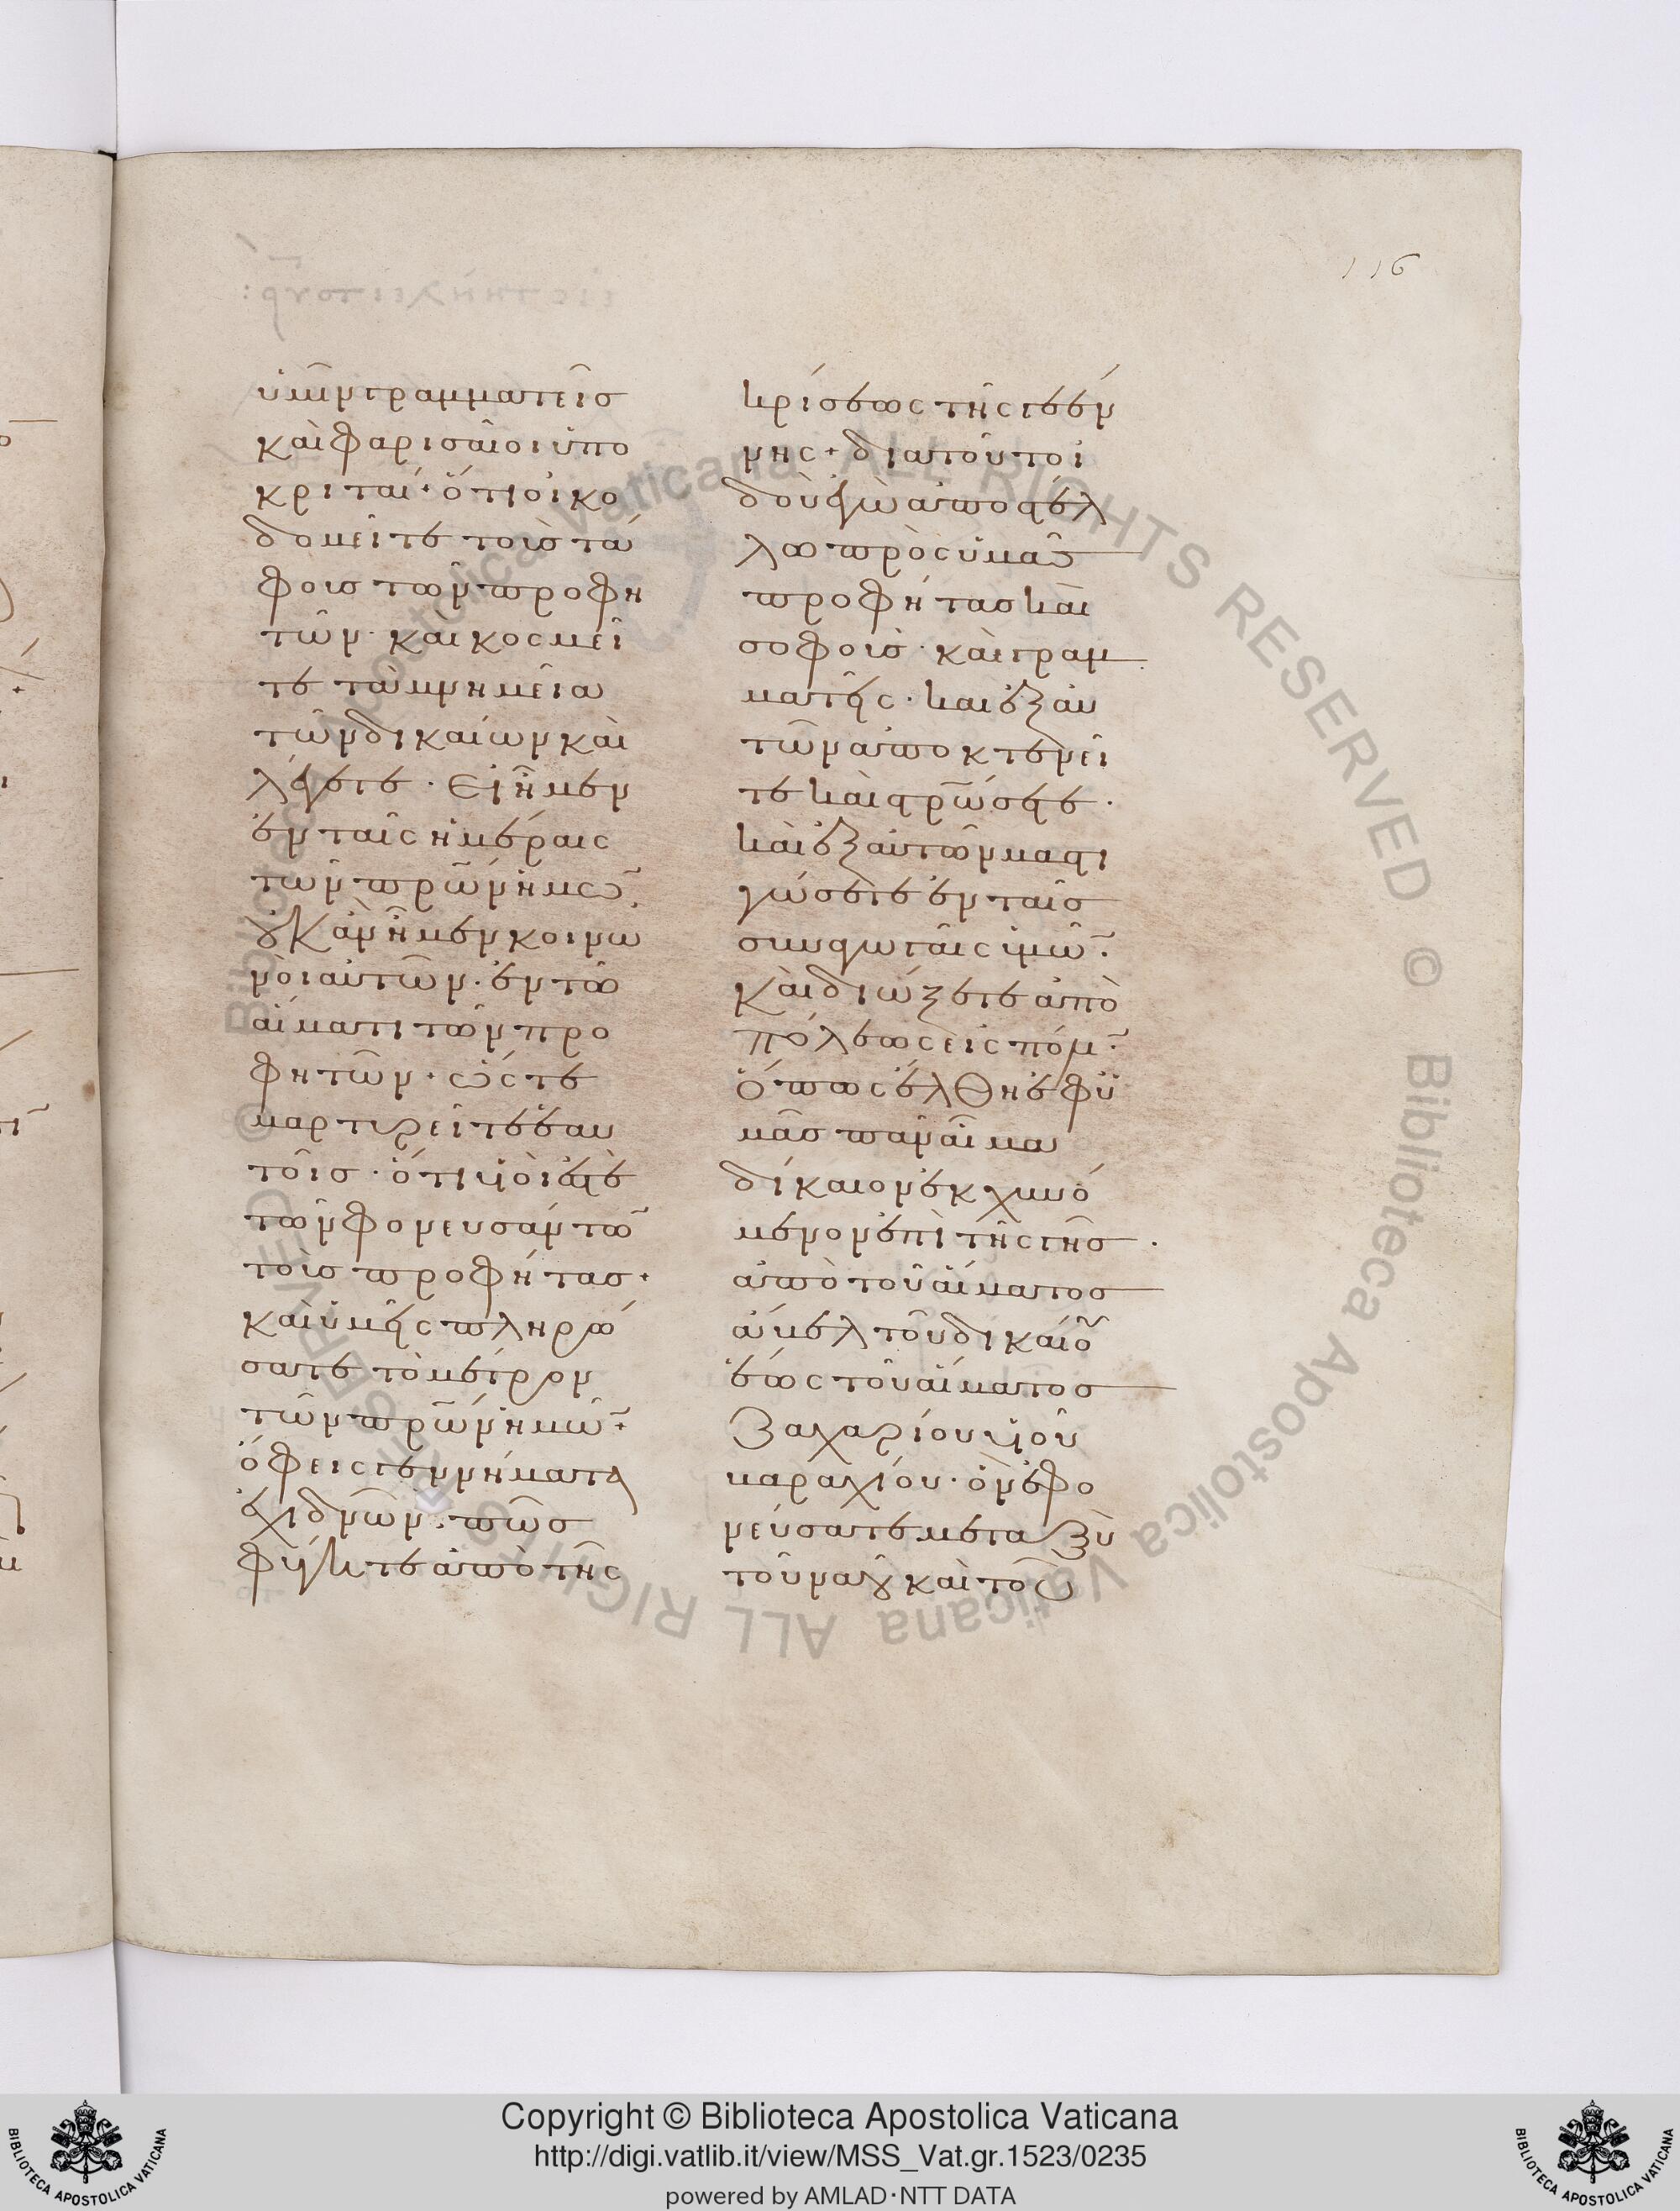 116
ὑμῖν γραμματεῖσ
καὶ φαρισαῖοι ὑπο
κριταί· ὅτι οἰκο
δομεῖτε τοὺσ τά
φουσ τῶν προφη
τῶν· καὶ κοσμεῖ
τε τὰ μνημεῖα
τῶν δικαίων καὶ
λέγετε· Εἰ ἦμεν
ἐν ταῖς ἡμέραις
τῶν πρῶν ἡμῶ
οὐκ ἂν ἦμεν κοινω
νοὶ αὐτῶν· ἐν τῶ
αἵματι τῶν προ
φητῶν· ὥστε
μαρτυρεῖτε ἑαυ
τοῖσ· ὅτι υἱοί ἐστε
τῶν φονευσάντω
τοὺσ προφήτασ·
καὶ ὑμεῖς πληρώ
σατε τὸ μέτρον
τῶν πρῶν ἡμῶ·
ὄφεις γεννήματα
ἐχιδνῶν· πῶσ
φύγητε ἀπὸ τῆς
κρίσεως τῆς γεέν
νης· διατοῦτο ἰ
δοὺ ἐγὼ ἀποστέλ
λω πρὸς ὑμᾶς
προφήτασ καὶ
σοφοὺσ· καὶ γραμ
ματεῖς· καὶ ἐξ αὐ
τῶν ἀποκτενεῖ
τε καὶ στρώσετε·
καὶ ἐξ αὐτῶν μαστι
γώσετε ἐν ταῖσ
συναγωγαῖς ὑμῶ·
καὶ διώξετε ἀπὸ
πόλεως εἰς πόλιν·
ὅπως ἔλθη ἐφ ὑ
μᾶσ πᾶν αἷμα
δίκαιον ἐκχυνό
μενον ἐπὶ τῆς γῆσ·
ἀπὸ τοῦ αἵματοσ
ἄμελ τοῦ δικαίου
ἕως τοῦ αἵματοσ
Ζαχαρίου υἱοῦ
βαραχίου· ὃν ἐφο
νεύσατε μεταξὺ
τοῦ ναοῦ καὶ τοῦ
Copyright © Biblioteca Apostolica Vaticana
http://digi.vatlib.it/view/MSS_Vat.gr.1523/0235
powered by AMLAD·NTT DATA
BIBLIOTECA APOSTOLICA VATICANA
BIBLIOTECA APOSTOLICA VATICANA
© Biblioteca Apostolica Vaticana ALL RIGHTS RESERVED
© Biblioteca Apostolica Vaticana ALL RIGHTS RESERVED